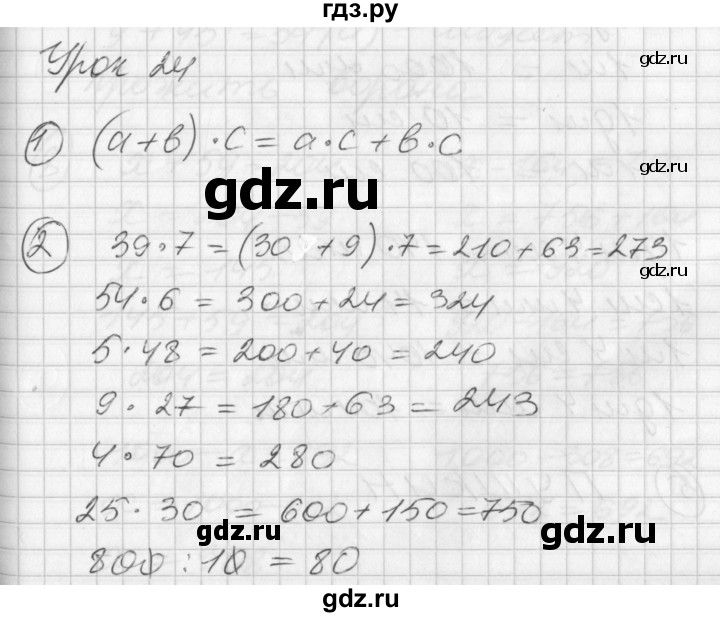 гдз.ру
gdz.ru
Урок 24
gdz.ru
1 (а+в)·с=а·с+в·с
gdz.ru
gdz.ru
2 39·7=(30+9)·7=210+63=273
54·6=300+24=324
5·48=200+40=240
gdz.ru
9·27=180+63=243
4·70=280
gdz.ru
25·30=600+150=750
gdz.ru
gdz.ru
800:10=80
gdz.ru